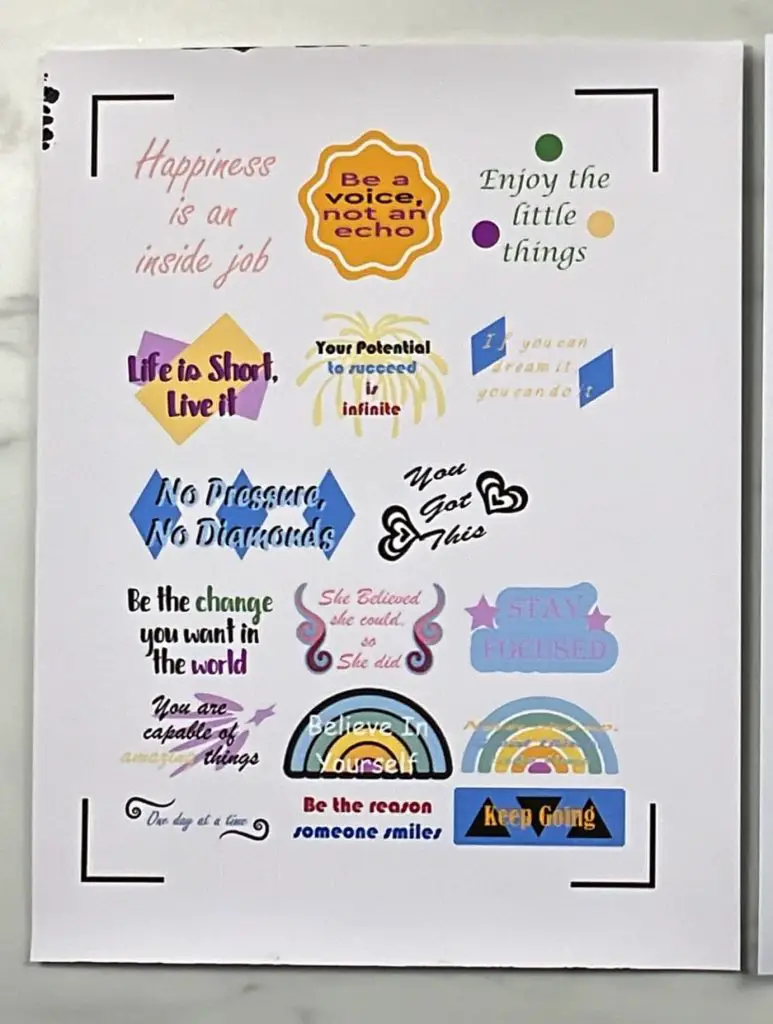 Happiness
is an
inside job
Be a
voice,
not an
echo
Enjoy the
little
things
Life is Short,
Live it
Your Potential
to succeed
is
infinite
If you can
dream it,
you can do it
No Pressure,
No Diamonds
You
Got
This
Be the change
you want in
the world
She Believed
she could,
so
She did
STAY
FOCUSED
You are
capable of
amazing things
Believe In
Yourself
One day at a time
Be the reason
someone smiles
Keep Going